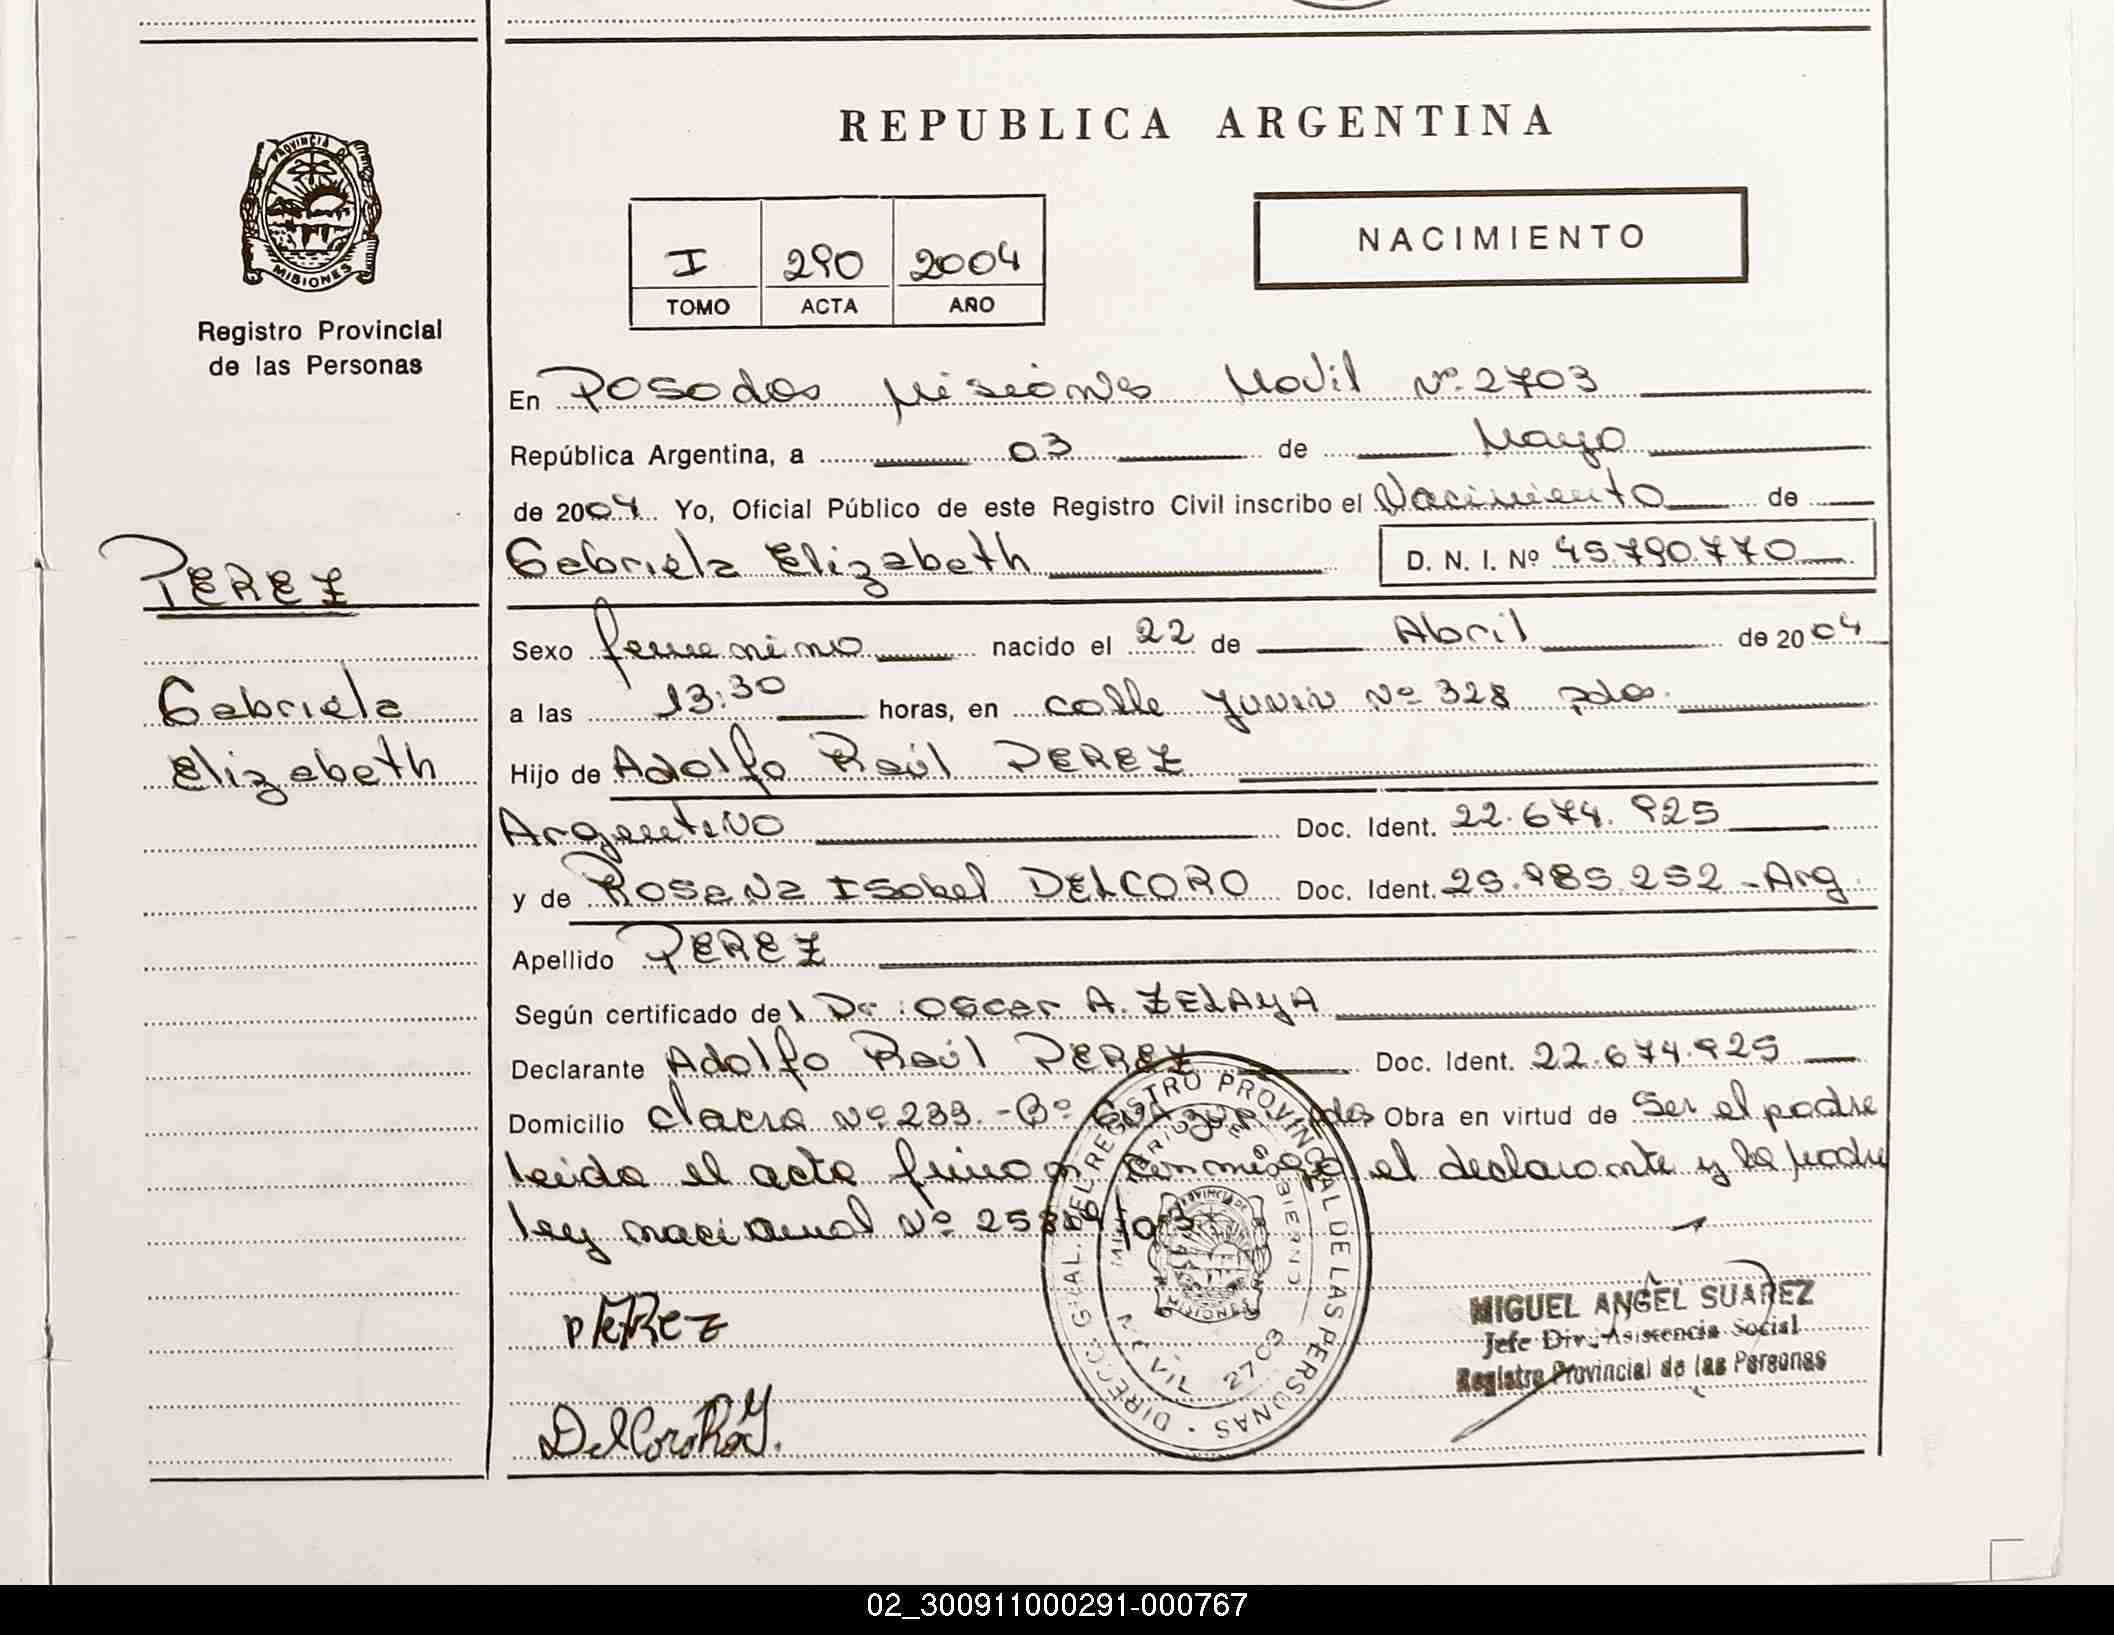 REPUBLICA ARGENTINA
PROVINCIA DE
MISIONES
Registro Provincial
de las Personas
NACIMIENTO
I 290 2004
TOMO ACTA AÑO
En Posadas Misiones Movil Nº 2703
República Argentina, a 03 de Mayo
de 2004 Yo, Oficial Público de este Registro Civil inscribo el Nacimiento de
Gabriela Elizabeth D. N. I. Nº 45.790.770
PEREZ
Gabriela
Elizabeth
Sexo femenino nacido el 22 de Abril de 2004
a las 13:30 horas, en calle Junin Nº 328 pdas.
Hijo de Adolfo Raúl PEREZ
Argentino Doc. Ident. 22.674.925
y de Rosana Isabel DELCORO Doc. Ident. 25.985.252 - Arg.
Apellido PEREZ
Según certificado del Dr: Oscar A. ZELAYA
Declarante Adolfo Raúl PEREZ Doc. Ident. 22.674.925
Domicilio chacra Nº 233.-Bº pdas Obra en virtud de Ser el padre
leida el acta firman conmigo el declarante y la madre
ley nacional Nº
PEREZ
DIRECC. GRAL. DEL REGISTRO PROVINCIAL DE LAS PERSONAS
GOBIERNO
PROVINCIA DE
MISIONES
MOVIL 2703
MIGUEL ANGEL SUAREZ
Jefe Div. Asistencia Social
Registro Provincial de las Personas
02_300911000291-000767